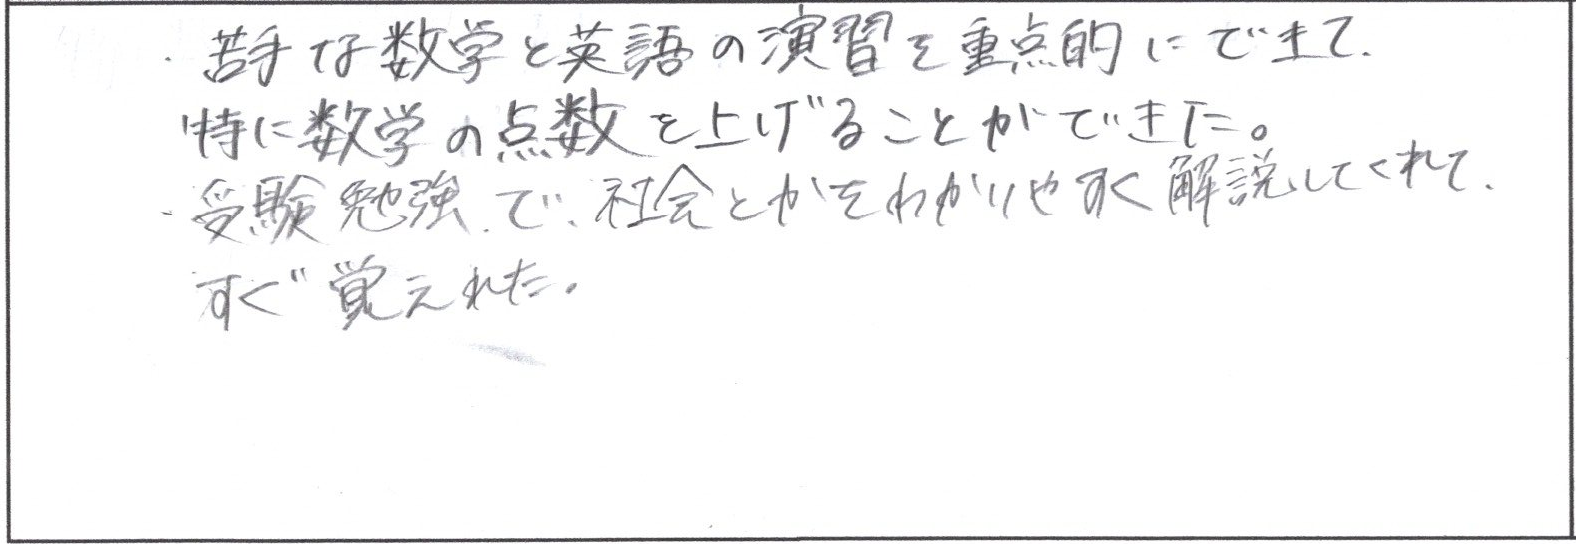 ・苦手な数学と英語の演習を重点的にできて、
特に数学の点数を上げることができた。
・受験勉強で、社会とかをわかりやすく解説してくれて、
すぐ覚えれた。